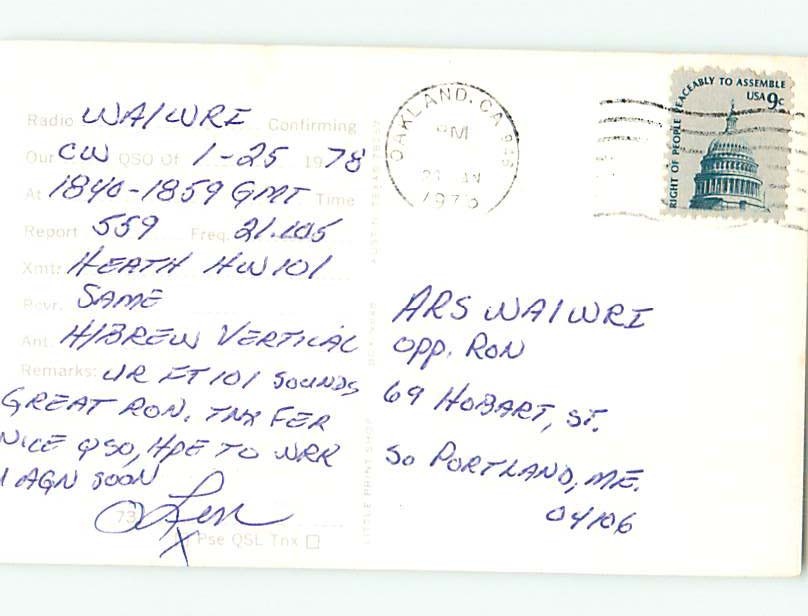 Radio WA1WRI Confirming
Our CW QSO Of 1-25 1978
At 1840-1859 GMT Time
Report 559 Freq. 21.105
Xmtr HEATH HW101
Rcvr. SAME
Ant. H/BREW VERTICAL
Remarks: UR FT101 SOUNDS
GREAT RON. TNX FER
NICE QSO, HPE TO WRK
U AGN SOON
73
Pse QSL Tnx
LITTLE PRINT SHOP AUSTIN TEXAS
OAKLAND, CA
PM
RIGHT OF PEOPLE PEACEABLY TO ASSEMBLE
USA 9c
ARS WA1WRI
OPP. RON
69 HOBART, ST.
SO PORTLAND, ME.
04106